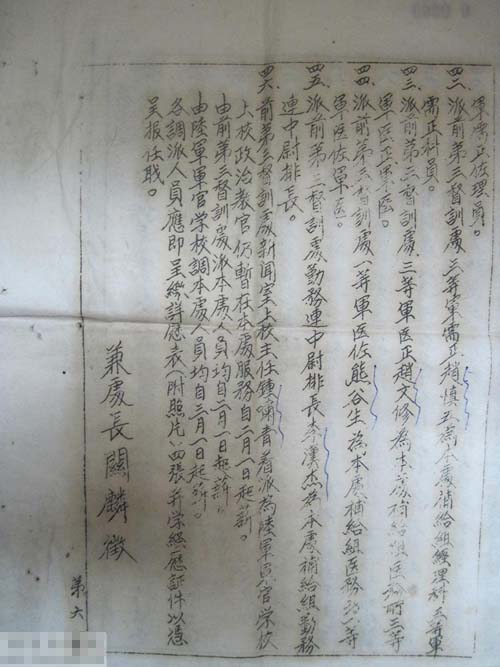 軍需正佐理員。
四二、派前第三督訓處三等軍需正趙慎五為本處補給組經理科三等軍
需正科員。
四三、派前第三督訓處三等軍医正趙文修為本處補給組医務所三等
軍医正軍医。
四四、派前第三督訓處一等軍医佐熊谷生為本處補給組医務所一等
軍医佐軍医。
四五、派前第三督訓處勤務連中尉排長李漢杰為本處補給組勤務
連中尉排長。
四六、前第三督訓處新闻室上校主任鍾彌青着派為陸軍軍官学校
上校政治教官仍暫在本處服務自二月一日起薪。
由前第三督訓處派本處人員均自二月一日起薪。
由陸軍軍官学校調本處人員均自三月一日起薪。
各調派人員應即呈繳詳歷表(附照片)四張並学經歷証件以憑
呈报任职。
兼處長關麟徵
第六